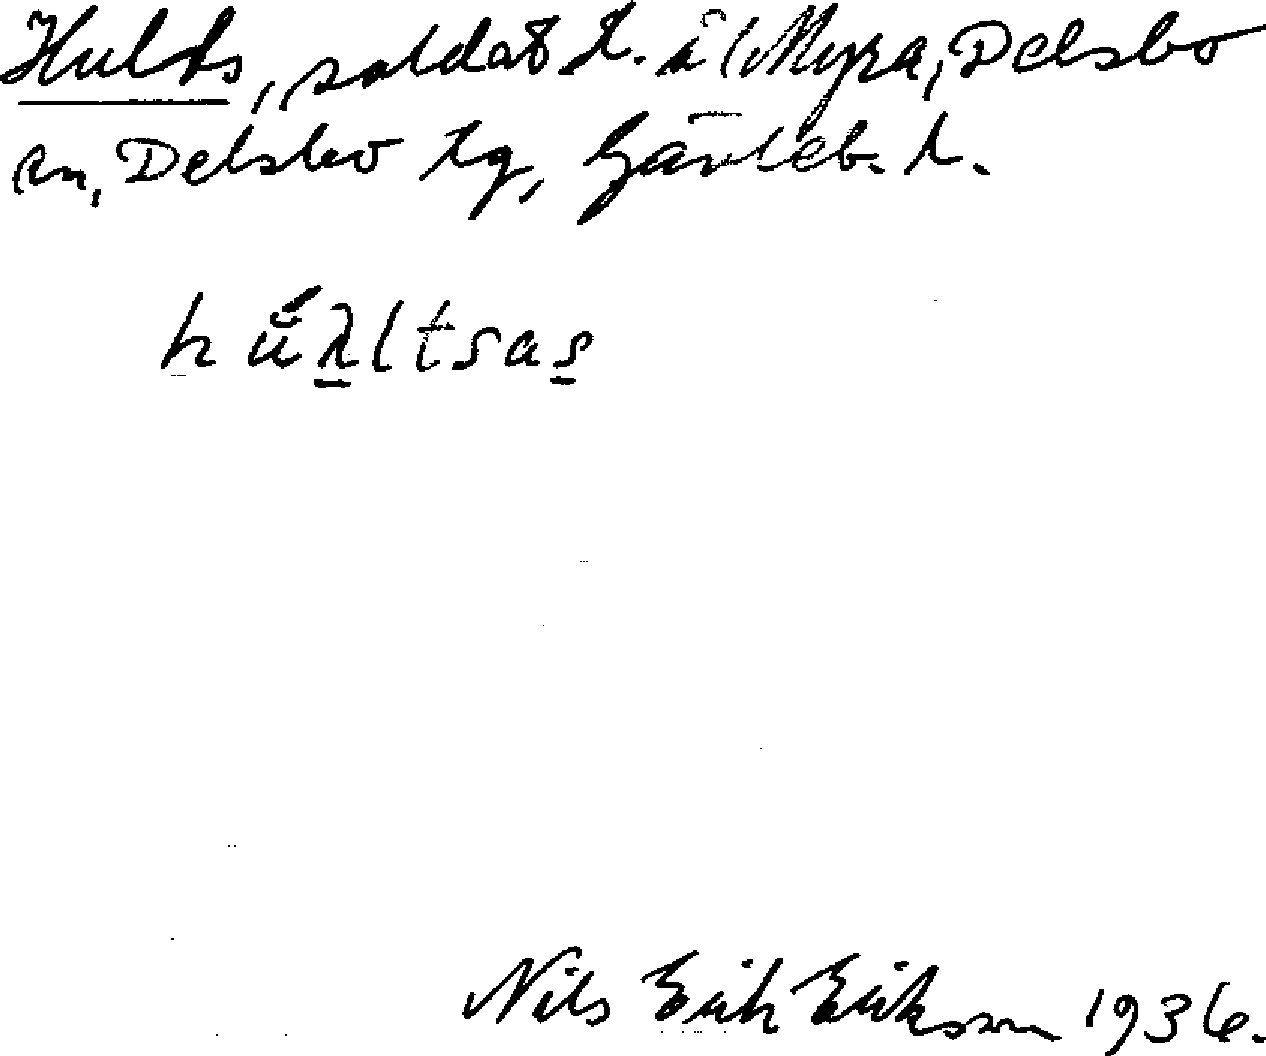 Hults, soldat t. å Myra, Delsbo
sn, Delsbo tg, Gävleb. l.
Nils Erik Eriksson 1936.